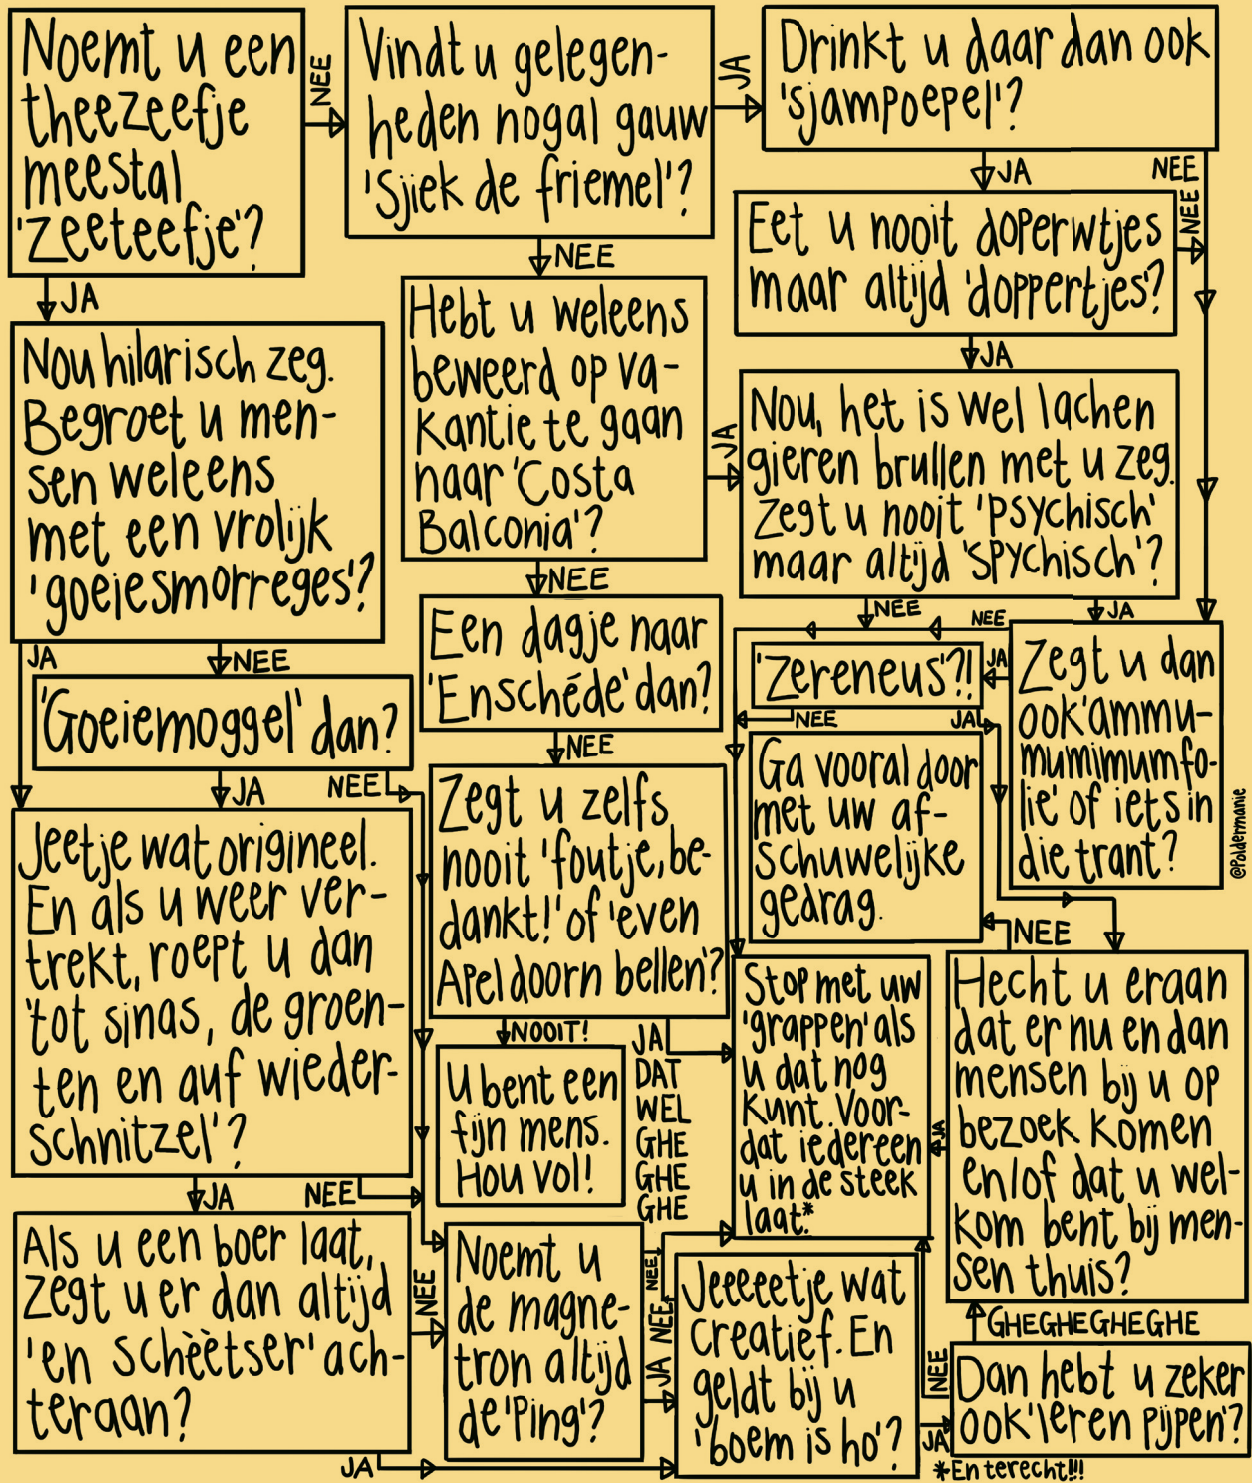 Noemt u een
theezeefje
meestal
'zeeteefje'?
NEE
Vindt u gelegen-
heden nogal gauw
'Sjiek de friemel'?
JA
Drinkt u daar dan ook
'sjampoepel'?
JA
NEE
JA
NEE
Eet u nooit doperwtjes
maar altijd 'doppertjes'?
NEE
JA
Nou hilarisch zeg.
Begroet u men-
sen weleens
met een vrolijk
'goeiesmorreges'?
Hebt u weleens
beweerd op va-
kantie te gaan
naar 'Costa
Balconia'?
JA
Nou, het is wel lachen
gieren brullen met u zeg.
Zegt u nooit 'psychisch'
maar altijd 'spychisch'?
NEE
NEE
JA
JA
NEE
'Goeiemoggel' dan?
JA
NEE
Een dagje naar
'Enschéde' dan?
NEE
NEE
'Zereneus'?!
JA
NEE
JA
Zegt u dan
ook 'ammu-
mumimumfo-
lie' of iets in
die trant?
@Poldermanie
Ga vooral door
met uw af-
schuwelijke
gedrag.
Jeetje wat origineel.
En als u weer ver-
trekt, roept u dan
'tot sinas, de groen-
ten en auf wieder-
schnitzel'?
Zegt u zelfs
nooit 'foutje, be-
dankt!' of 'even
Apeldoorn bellen'?
NOOIT!
JA
DAT
WEL
GHE
GHE
GHE
U bent een
fijn mens.
Hou vol!
Stop met uw
'grappen' als
u dat nog
kunt. Voor-
dat iedereen
u in de steek
laat.*
NEE
JA
Hecht u eraan
dat er nu en dan
mensen bij u op
bezoek komen
en/of dat u wel-
kom bent bij men-
sen thuis?
JA
NEE
Als u een boer laat,
zegt u er dan altijd
'en schèètser' ach-
teraan?
NEE
JA
Noemt u
de magne-
tron altijd
de 'Ping'?
NEE
NEE
JA
Jeeeeetje wat
creatief. En
geldt bij u
'boem is ho'?
NEE
JA
GHEGHEGHEGHE
Dan hebt u zeker
ook 'leren pijpen'?
*En terecht!!!